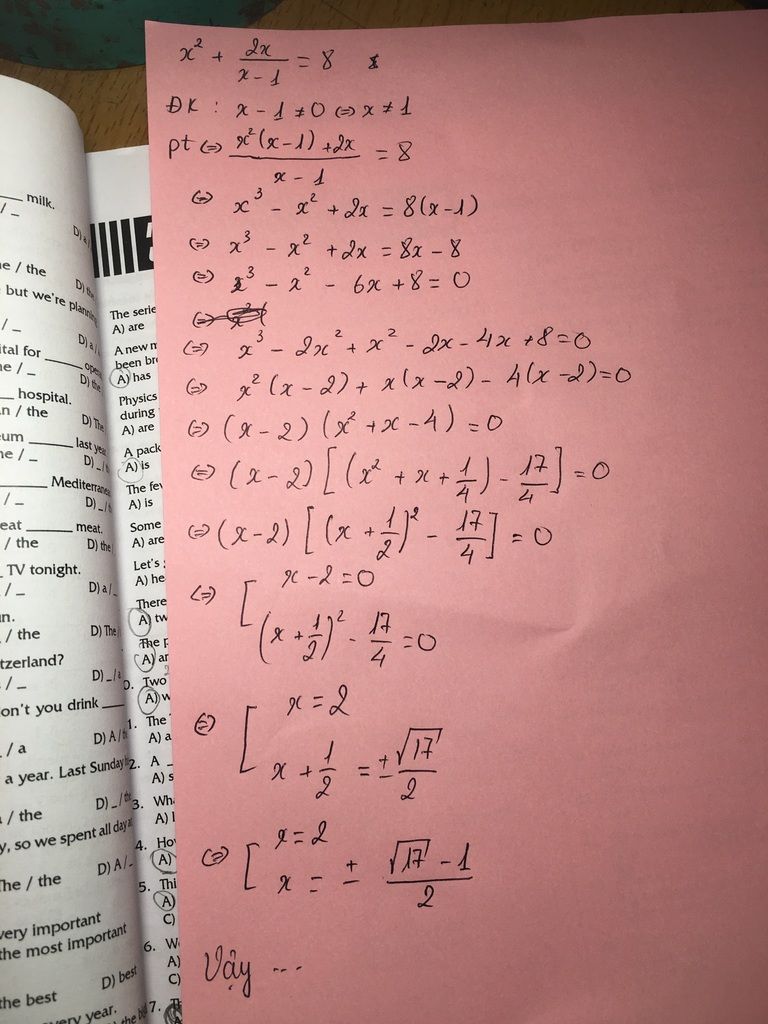 x² + 2x/(x - 1) = 8
ĐK : x - 1 ≠ 0 <=> x ≠ 1
pt <=> (x²(x - 1) + 2x)/(x - 1) = 8
<=> x³ - x² + 2x = 8(x - 1)
<=> x³ - x² + 2x = 8x - 8
<=> x³ - x² - 6x + 8 = 0
<=> x³ - 2x² + x² - 2x - 4x + 8 = 0
<=> x²(x - 2) + x(x - 2) - 4(x - 2) = 0
<=> (x - 2)(x² + x - 4) = 0
<=> (x - 2)[(x² + x + 1/4) - 17/4] = 0
<=> (x - 2)[(x + 1/2)² - 17/4] = 0
<=> [ x - 2 = 0
(x + 1/2)² - 17/4 = 0
<=> [ x = 2
x + 1/2 = ± √17/2
<=> [ x = 2
x = ± (√17 - 1)/2
Vậy ...
milk.
D) a /
e / the
D) the
but we're planning
/ _
D) a /
ital for ____ opera
e / _
D) the
hospital.
n / the
D) The
um ____ last year
ne / _
D) _ /
____ Mediterranean
/ _
D) _ /
eat ____ meat.
/ the
D) the
TV tonight.
/ _
D) a / _
n.
/ the
D) The
tzerland?
/ _
D) _ / a
on't you drink ____
/ a
D) A /
a year. Last Sunday
/ the
D) _ / the
y, so we spent all day at
he / the
D) A / _
very important
the most important
the best
D) best
very year.
The serie
A) are
A new m
been bro
A) has
Physics
during
A) are
A pack
A) is
The few
A) is
Some
A) are
Let's
A) he
There
A) tw
The p
A) ar
0. Two
A) w
1. The
A) a
2. A _
A) s
3. Wha
A) I
4. How
A)
5. Thi
A)
C)
6. W
A)
C)
7.